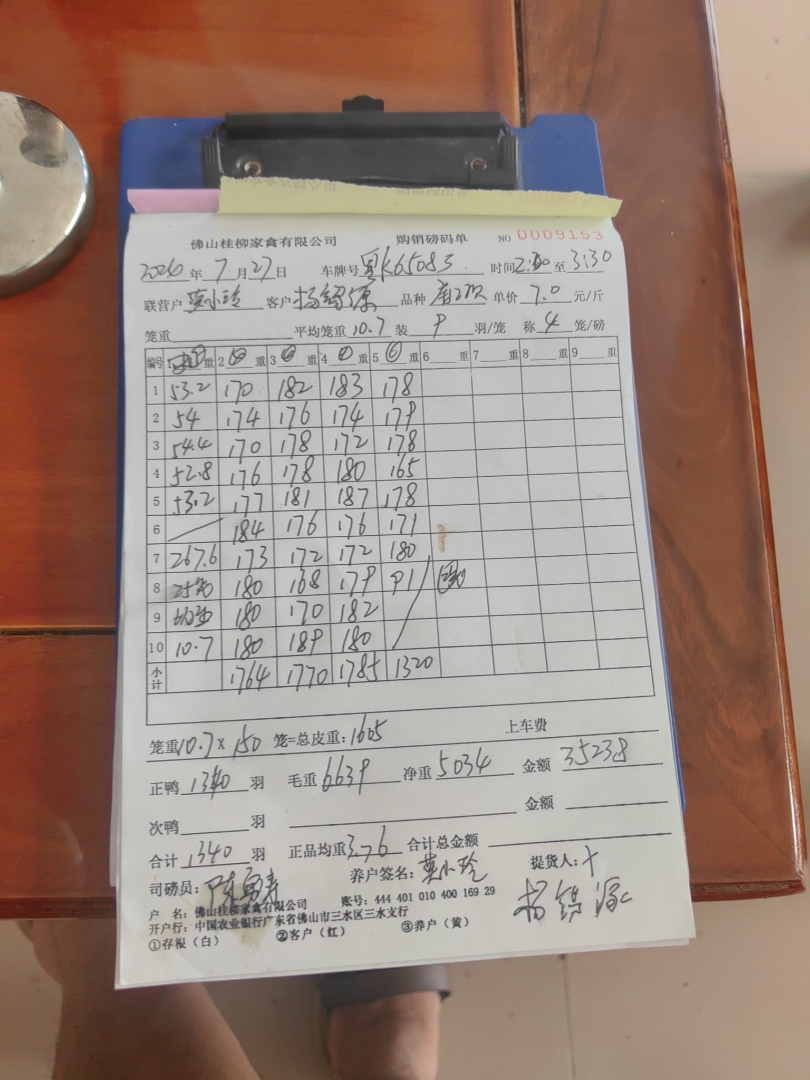 佛山桂柳家禽有限公司 购销磅码单 NO 0009153
2026年7月27日 车牌号 粤K65083 时间2:50至3:30
联营户 莫小玲 客户 杨锦源 品种 单价 7.0 元/斤
笼重 平均笼重 10.7 装 9 羽/笼 称 4 笼/磅
编号 1 重 2 重 3 重 4 重 5 重 6 重 7 重 8 重 9 重
1 53.2 170 182 183 178
2 54 174 176 174 179
3 54.4 170 178 172 178
4 52.8 176 178 180 165
5 53.2 177 181 187 178
6 184 176 176 171
7 267.6 173 172 172 180
8 180 168 179 91
9 180 170 182
10 10.7 180 189 180
小计 1764 1770 1785 1320
笼重 10.7 × 150 笼=总皮重: 1605 上车费
正鸭 1340 羽 毛重 6639 净重 5034 金额 35238
次鸭 羽 金额
合计 1340 羽 正品均重 3.76 合计总金额
司磅员: 养户签名: 莫小玲 提货人:
杨锦源
户 名: 佛山桂柳家禽有限公司 账号: 444 401 010 400 169 29
开户行: 中国农业银行广东省佛山市三水区三水支行
①存根(白) ②客户(红) ③养户(黄)